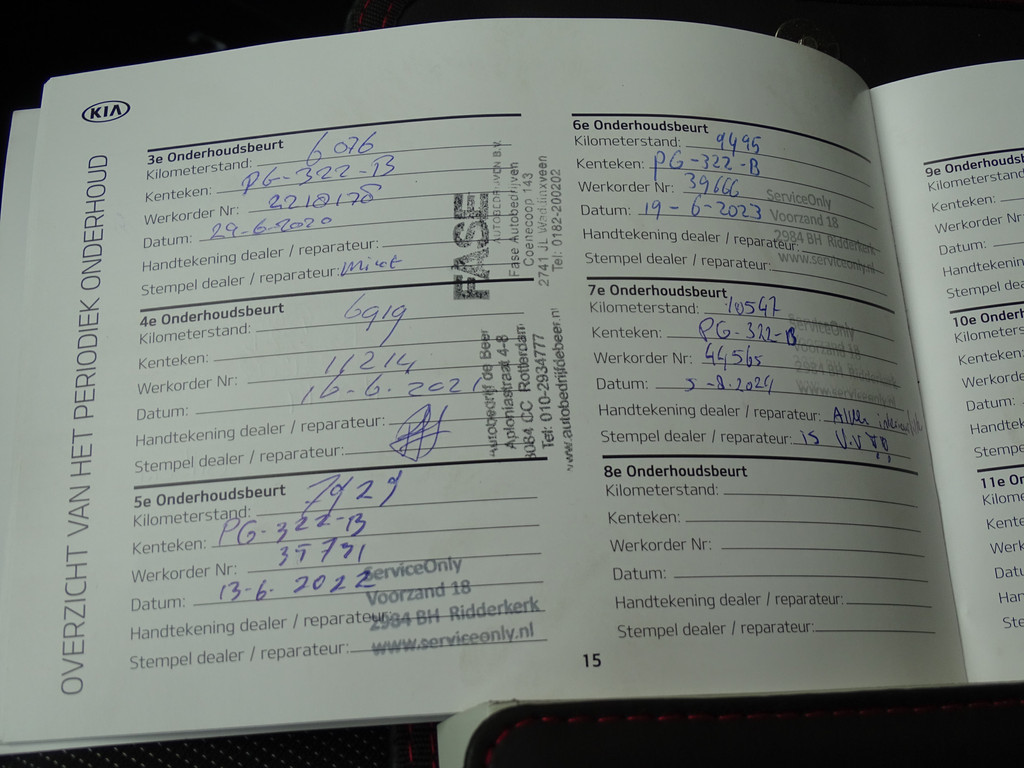 KIA
OVERZICHT VAN HET PERIODIEK ONDERHOUD
3e Onderhoudsbeurt
Kilometerstand: 6076
Kenteken: PG-322-B
Werkorder Nr: 2218178
Datum: 29-6-2020
Handtekening dealer / reparateur:
Stempel dealer / reparateur:
FASE
AUTOBEDRIJVEN B.V.
Fase Autobedrijven
Coenecoop 143
2741 JL Waddinxveen
Tel: 0182-200202
4e Onderhoudsbeurt
Kilometerstand: 6919
Kenteken:
Werkorder Nr: 11214
Datum: 16-6-2021
Handtekening dealer / reparateur:
Stempel dealer / reparateur:
Autobedrijf de Beer
Aploniastraat 4-8
3084 CC Rotterdam
Tel: 010-2934777
www.autobedrijfdebeer.nl
5e Onderhoudsbeurt
Kilometerstand: 7929
Kenteken: PG-322-B
Werkorder Nr: 35731
Datum: 13-6-2022
Handtekening dealer / reparateur:
Stempel dealer / reparateur:
ServiceOnly
Voorzand 18
2984 BH Ridderkerk
www.serviceonly.nl
6e Onderhoudsbeurt
Kilometerstand: 9495
Kenteken: PG-322-B
Werkorder Nr: 39666
Datum: 19-6-2023
Handtekening dealer / reparateur:
Stempel dealer / reparateur:
ServiceOnly
Voorzand 18
2984 BH Ridderkerk
www.serviceonly.nl
7e Onderhoudsbeurt
Kilometerstand: 10547
Kenteken: PG-322-B
Werkorder Nr: 44565
Datum: 5-8-2024
Handtekening dealer / reparateur:
Stempel dealer / reparateur: is
ServiceOnly
Voorzand 18
2984 BH Ridderkerk
www.serviceonly.nl
8e Onderhoudsbeurt
Kilometerstand:
Kenteken:
Werkorder Nr:
Datum:
Handtekening dealer / reparateur:
Stempel dealer / reparateur:
15
9e Onderhoudsb
Kilometerstand
Kenteken:
Werkorder Nr
Datum:
Handtekenin
Stempel dea
10e Onderh
Kilometers
Kenteken:
Werkorde
Datum:
Handtek
Stempe
11e Or
Kilome
Kente
Werk
Datu
Han
Ste